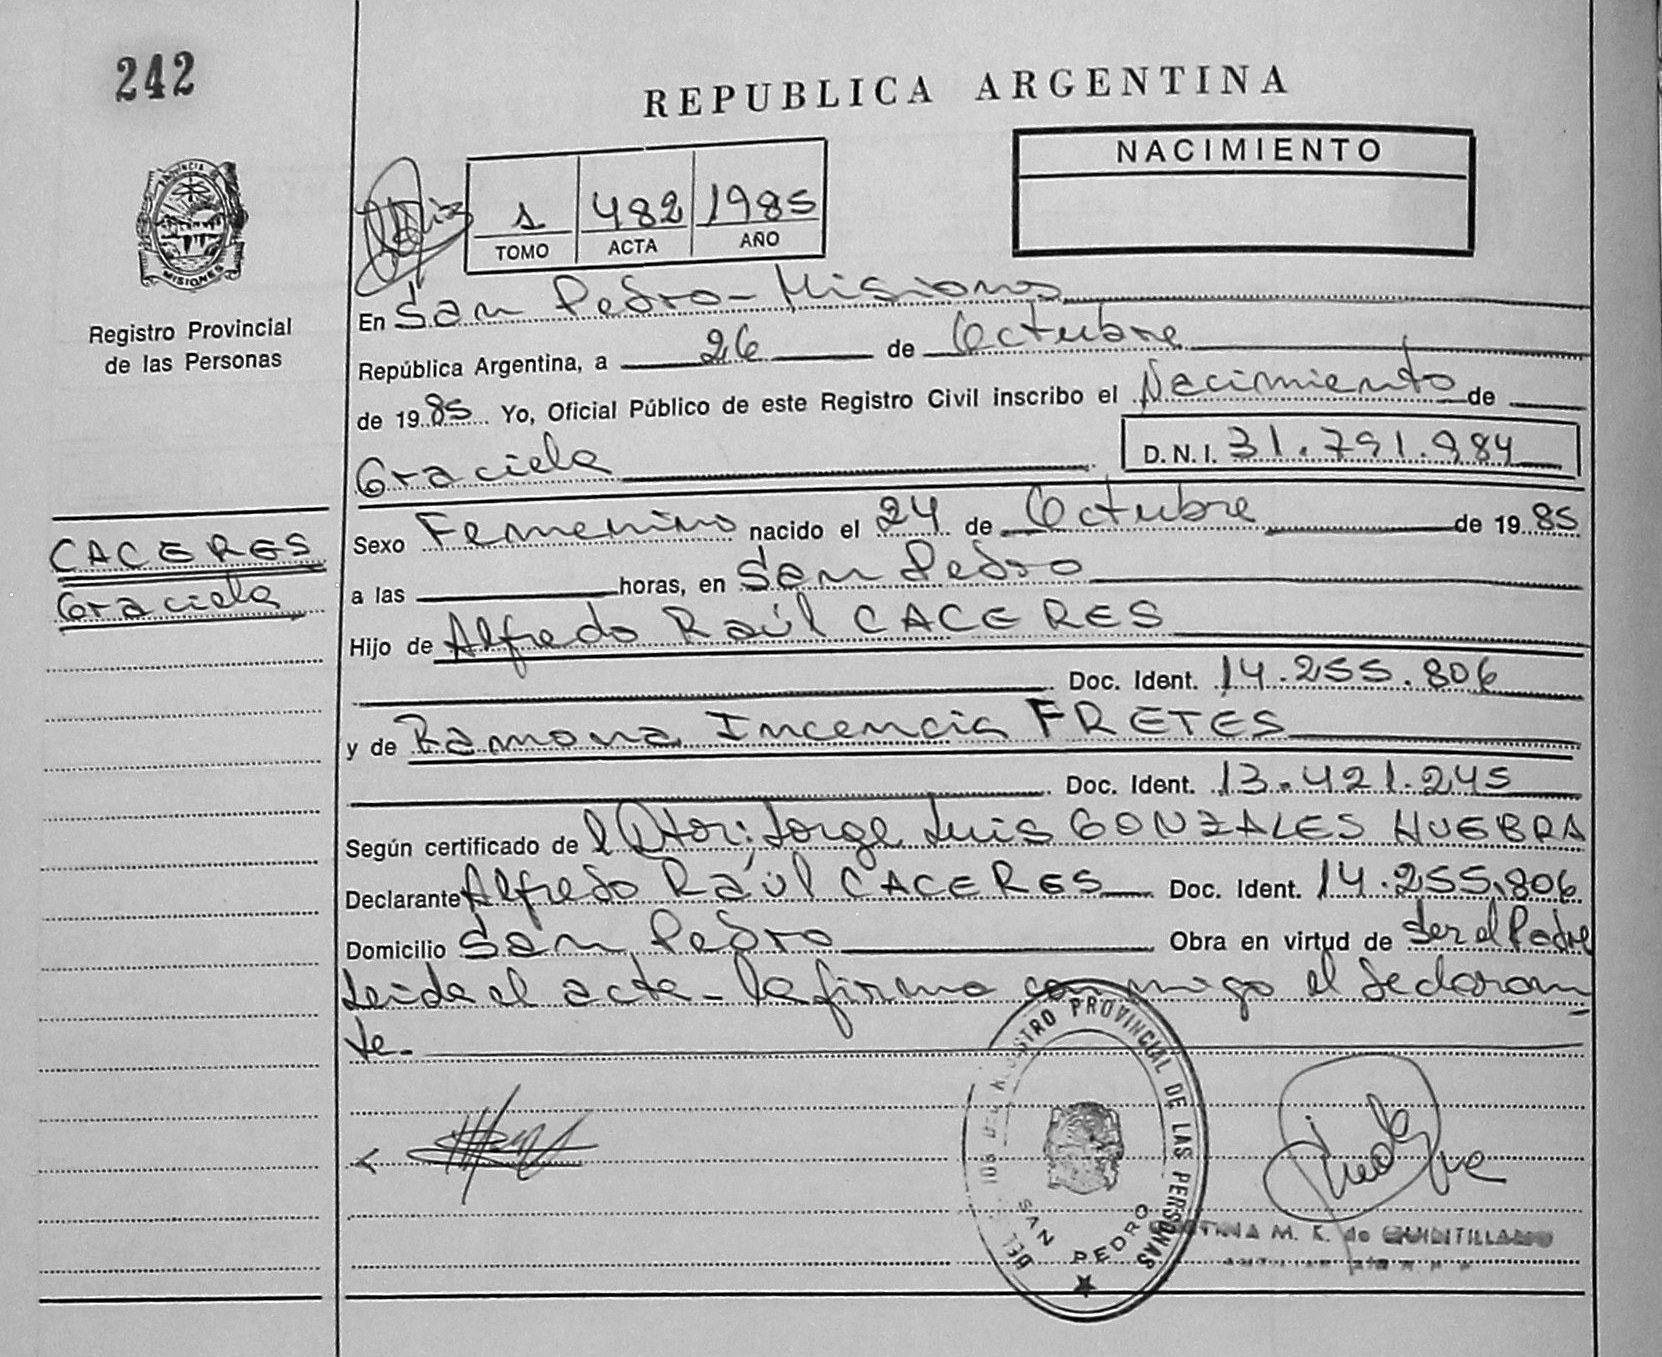 242
REPUBLICA ARGENTINA
NACIMIENTO
1 482 1985
TOMO ACTA AÑO
PROVINCIA DE
MISIONES
Registro Provincial
de las Personas
En San Pedro - Misiones
República Argentina, a 26 de Octubre
de 1985 Yo, Oficial Público de este Registro Civil inscribo el Nacimiento de
Graciela D.N.I. 31.791.984
CACERES
Graciela
Sexo Femenino nacido el 24 de Octubre de 1985
a las horas, en San Pedro
Hijo de Alfredo Raúl CACERES
Doc. Ident. 14.255.806
y de Ramona Incencia FRETES
Doc. Ident. 13.421.245
Según certificado de l Dtor: Jorge Luis GONZALES HUEBRA
Declarante Alfredo Raúl CACERES Doc. Ident. 14.255.806
Domicilio San Pedro Obra en virtud de ser el Padre
Leida el acta - la firma conmigo el declaran
te-
REGISTRO PROVINCIAL DE LAS PERSONAS
SAN PEDRO
M. K. de QUINTILLANO